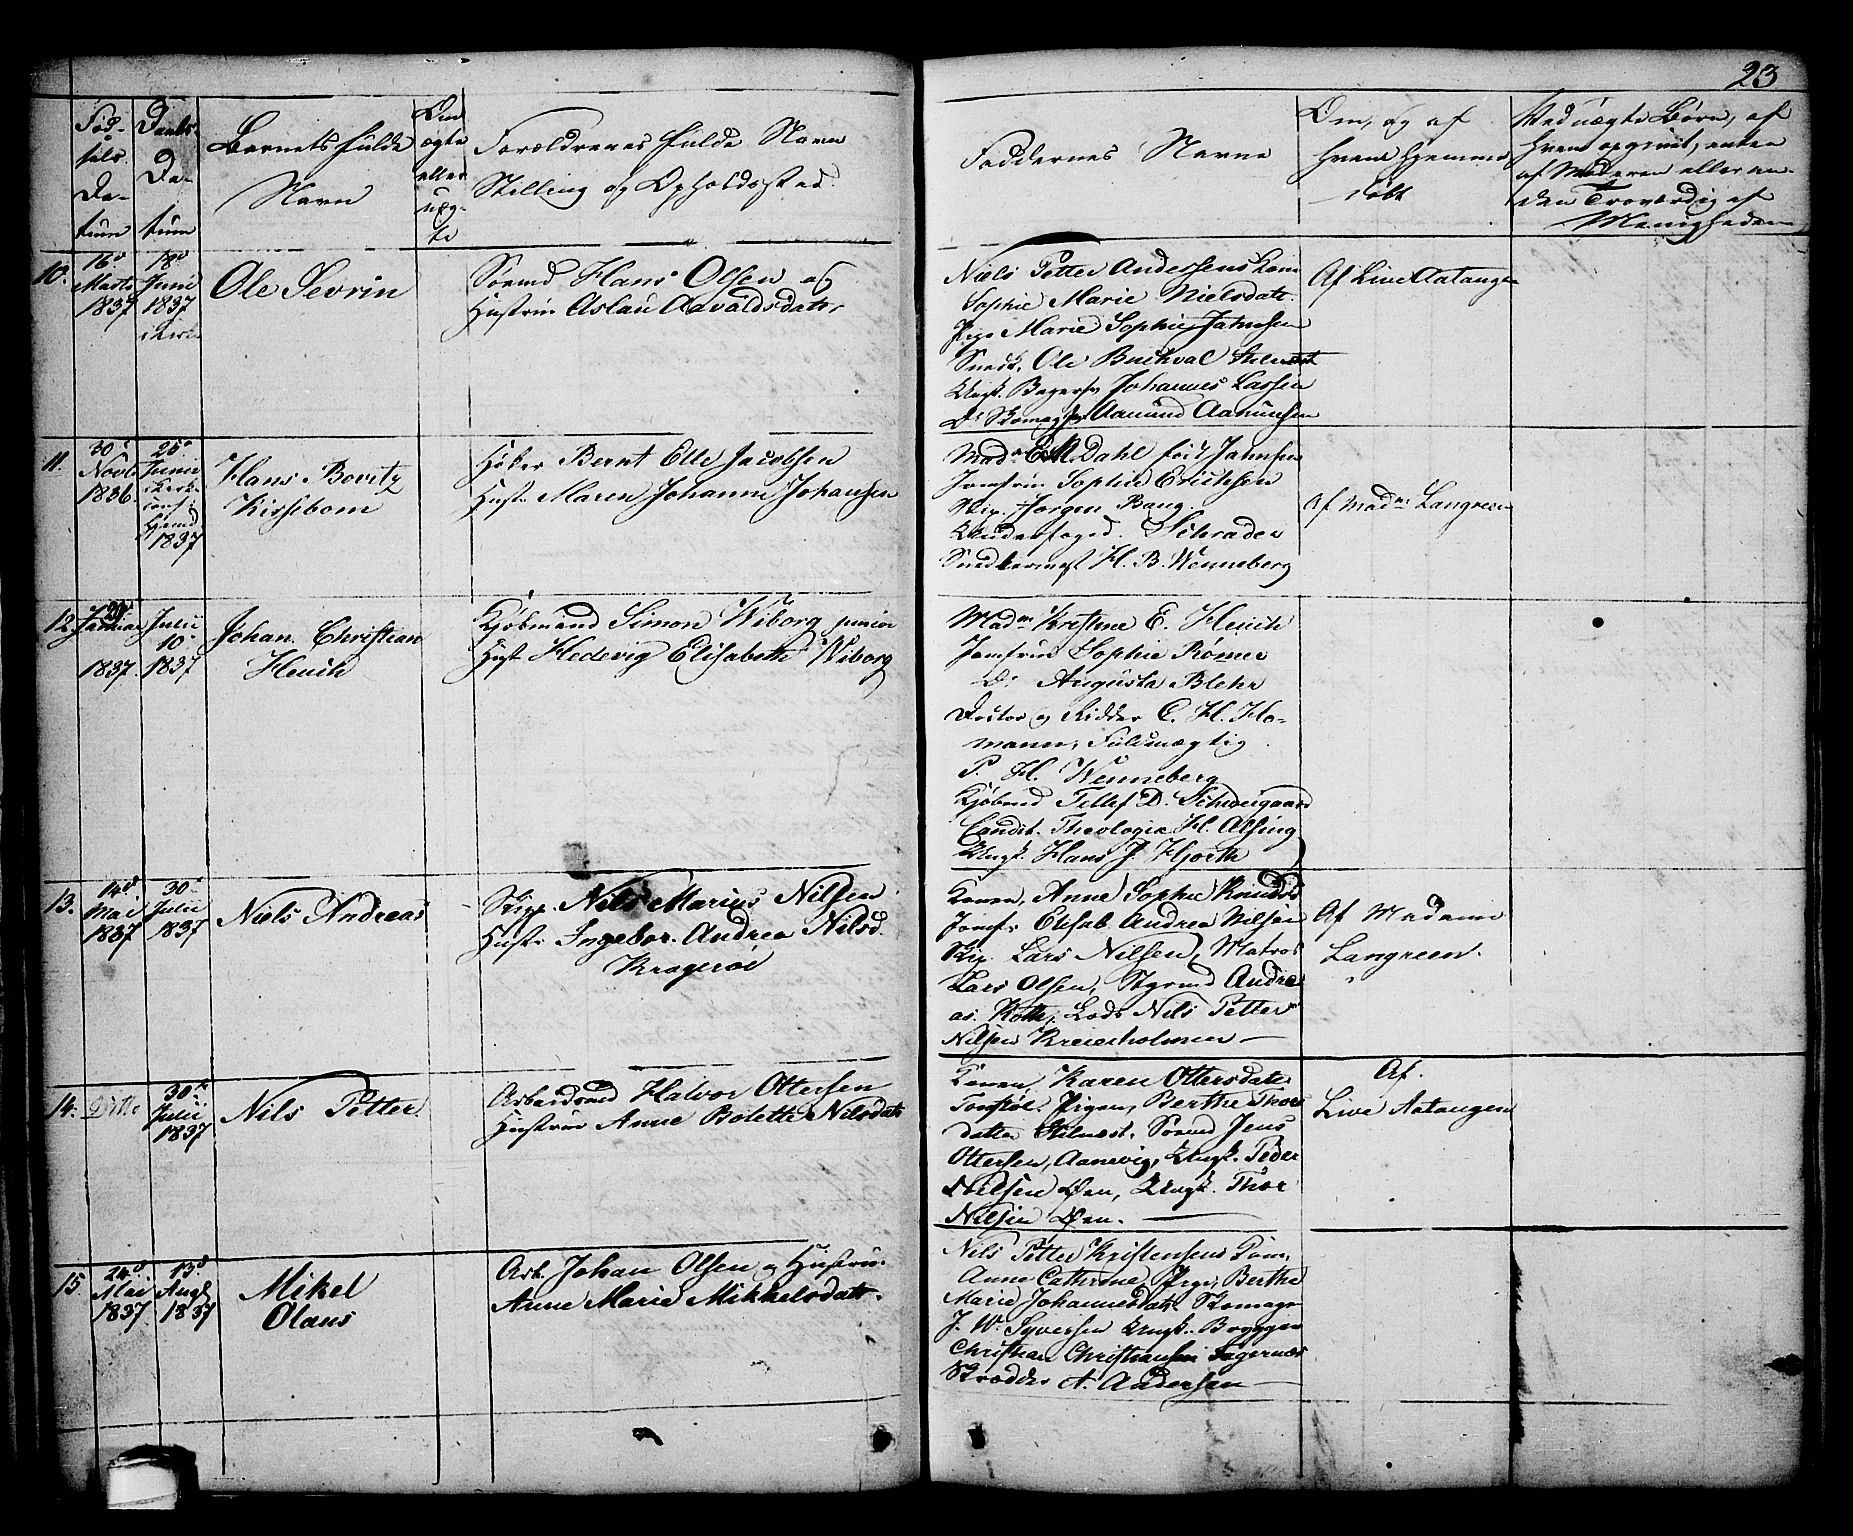 23
Fød-
sels
Da-
tum
Daabs
Da-
tum
Barnets fulde
Navn
Om
ægte
eller
uæg-
te
Forældrenes fulde Navn
Stilling og Opholdssted.
Faddernes Navne
Om, og af
hvem hjemme
døbt
Ved uægte Børn, af
hvem opgivet, enten
af Moderen eller an-
den Troværdig af
Menigheden
10.
16d
Marts
1837
18d
Juni
1837
i Kirken
Ole Sevrin
Sømd Hans Olsen og
Hustrue Aslau Aavaldsdatr
Niels Petter Andersens Kone
Sophie Marie Nielsdatr.
Pige Marie Sophie Jahnsen
Snedk. Ole Buckval
Ungk. Bagersv Johannes Lassen
Do Skomagsv Aamund Aamunsen
Af Live Aatangen
11.
30d
Novbr
1836
25d
Juni
i Kirk-
conf:
Hjemd
1837
Hans Bovitz
Kirsebom
Høker Bernt Elle Jacobsen
Hust. Maren Johanne Johansen
Made E. M. Dahl fød Jahnsen
Jomfrue Sophie Erichsen
Skip. Jørgen Bang.
Underfoged. Schrader
Snedkermest H. B. Wenneberg
Af Madme Langreen
12
Januar
1837.
Julii
10d
1837
Johan Christian
Heuch
Kjøbmand Simon Wiborg junior
Hust Hedevig Elisabeth Wiborg
Madme Kristine E. Heuch
Jomfrue Sophie Rømer
Do Augusta Blehr
Doctor og Ridder C. H. Ho-
mann, Fuldmægtig
P. H. Wenneberg
Kjøbmd Tellef D. Schweigaard
Candit. Theologie H. Alsing
Ungk. Hans J. Hjorth
13.
14d
Mai
1837
30d
Julii
1837
Niels Andreas
Skip. Nils Marius Nilsen
Hust. Ingebor. Andrea Nilsd.
Kragerøe
Konen, Anne Sophie Knudsd
Jomfr Elisab. Andrea Nilsen
Skip. Lars Nilsen, Matros
Lars Olsen, Styrmd Andre
as. Koth, Lods Nils Petter
Nilsen Kreierholmen
Af Madame
Langreen.
14.
Ditto
30d
Julii
1837
Nils Petter.
Arbeidsmd Halvor Ottersen
Hustrue Anne Bolette Nilsdatr
Konen, Karen Ottersdatr
Pigen, Berthe Thors
datter Sømd Jens
Ottersen, Aanevig, Ungk. Peder
Nielsen Øen, Ungk. Thor
Nilsen Øen.
Af.
Live Aatangen
15
24d
Mai
1837.
13d
Augt
1837
Mikel
Olaus
Arb. Johan Olsen og Hustru.
Anne Marie Mikkelsdatr.
Nils Petter Kristensens Kone,
Anne Cathrine, Pige, Berthe
Marie Johannesdatr. Skomager
J. W. Syversen Ungk. Brygger
Christian Christiansen Fagernæs
Skrædder A. Andersen